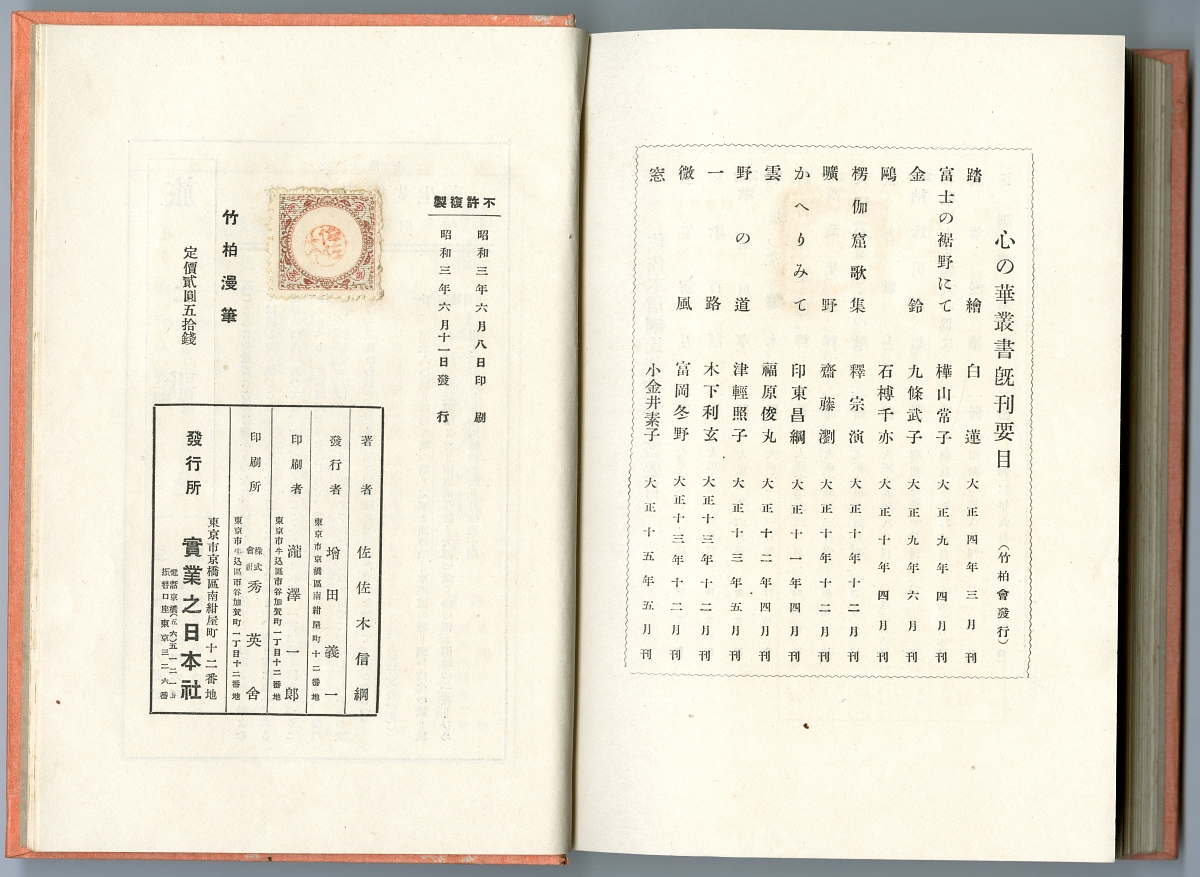 心の華叢書既刊要目 (竹柏會發行)
踏繪 白蓮 大正四年三月刊
富士の裾野にて 樺山常子 大正九年四月刊
金鈴 九條武子 大正九年六月刊
鷗 石榑千亦 大正十年四月刊
楞伽窟歌集 釋宗演 大正十年十二月刊
曠野 齋藤瀏 大正十年十二月刊
かへりみて 印東昌綱 大正十一年四月刊
雲 福原俊丸 大正十二年四月刊
野の道 津輕照子 大正十三年五月刊
一路 木下利玄 大正十三年十二月刊
微風 富岡冬野 大正十三年十二月刊
窓 小金井素子 大正十五年五月刊
不許復製
昭和三年六月八日印刷
昭和三年六月十一日發行
竹柏漫筆
定價貳圓五拾錢
著者 佐佐木信綱
東京市京橋區南紺屋町十二番地
發行者 增田義一
東京市牛込區市谷加賀町一丁目十二番地
印刷者 瀧澤一郎
東京市牛込區市谷加賀町一丁目十二番地
印刷所 株式會社秀英舍
東京市京橋區南紺屋町十二番地
發行所 實業之日本社
電話京橋
振替口座東京三二六番